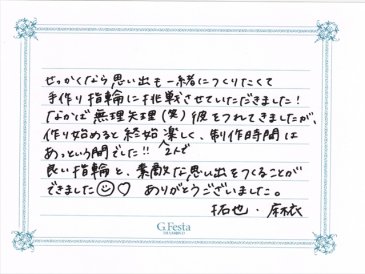 せっかくなら思い出も一緒につくりたくて
手作り指輪に挑戦させていただきました!
なかば無理矢理(笑)彼をつれてきましたが、
作り始めると終始楽しく、制作時間は
あっという間でした!! 2人で
良い指輪と、素敵な思い出をつくることが
できました☺♡ ありがとうございました。
拓也・麻衣
G.Festa